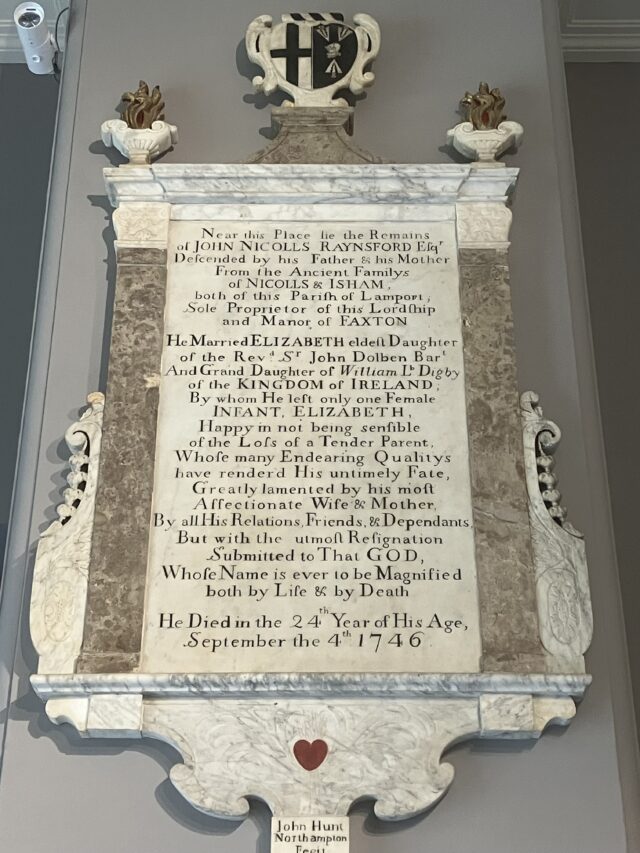 Near this Place lie the Remains
of JOHN NICOLLS RAYNSFORD Esqr
Deſcended by his Father & his Mother
From the Ancient Familys
of NICOLLS & ISHAM,
both of this Pariſh of Lamport,
Sole Proprietor of this Lordſhip
and Manor of FAXTON
He Married ELIZABETH eldeſt Daughter
of the Revd Sr John Dolben Bart
And Grand Daughter of William Ld Digby
of the KINGDOM of IRELAND,
By whom He left only one Female
INFANT, ELIZABETH,
Happy in not being ſenſible
of the Loſs of a Tender Parent,
Whoſe many Endearing Qualitys
have renderd His untimely Fate,
Greatly lamented by his moſt
Affectionate Wife & Mother,
By all His Relations, Friends, & Dependants,
But with the utmoſt Reſignation
Submitted to That GOD,
Whoſe Name is ever to be Magnified
both by Life & by Death
He Died in the 24th Year of His Age,
September the 4th 1746
John Hunt
Northampton
Fecit